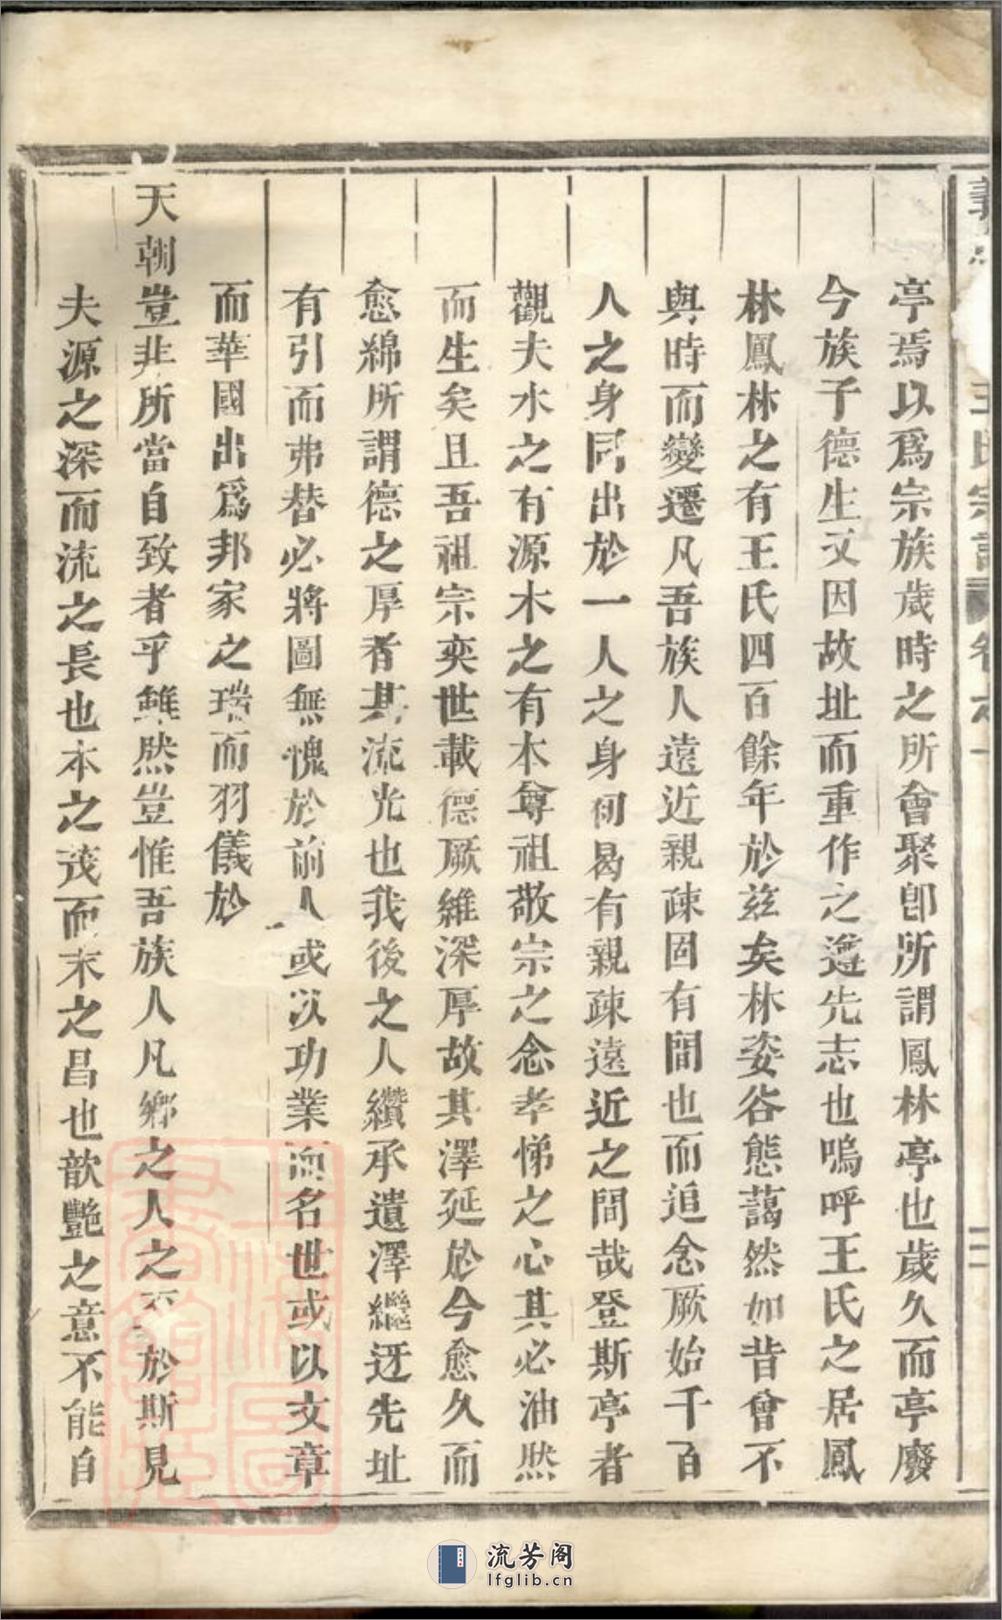 王氏宗譜 卷之一 二
亭焉以爲宗族歲時之所會聚即所謂鳳林亭也歲久而亭廢
今族子德生又因故址而重作之遵先志也嗚呼王氏之居鳳
林鳳林之有王氏四百餘年於茲矣林姿谷態藹然如昔曾不
與時而變遷凡吾族人遠近親疎固有間也而追念厥始千百
人之身同出於一人之身初曷有親疎遠近之間哉登斯亭者
觀夫水之有源木之有本尊祖敬宗之念孝悌之心其必油然
而生矣且吾祖宗奕世載德厥維深厚故其澤延於今愈久而
愈綿所謂德之厚者其流光也我後之人纘承遺澤繼迓先址
有引而弗替必將圖無愧於前人或以功業而名世或以文章
而華國出爲邦家之瑞而羽儀於
天朝豈非所當自致者乎雖然豈惟吾族人凡鄉之人之至於斯見
夫源之深而流之長也本之茂而末之昌也歆艷之意不能自
流芳阁
lfglib.cn